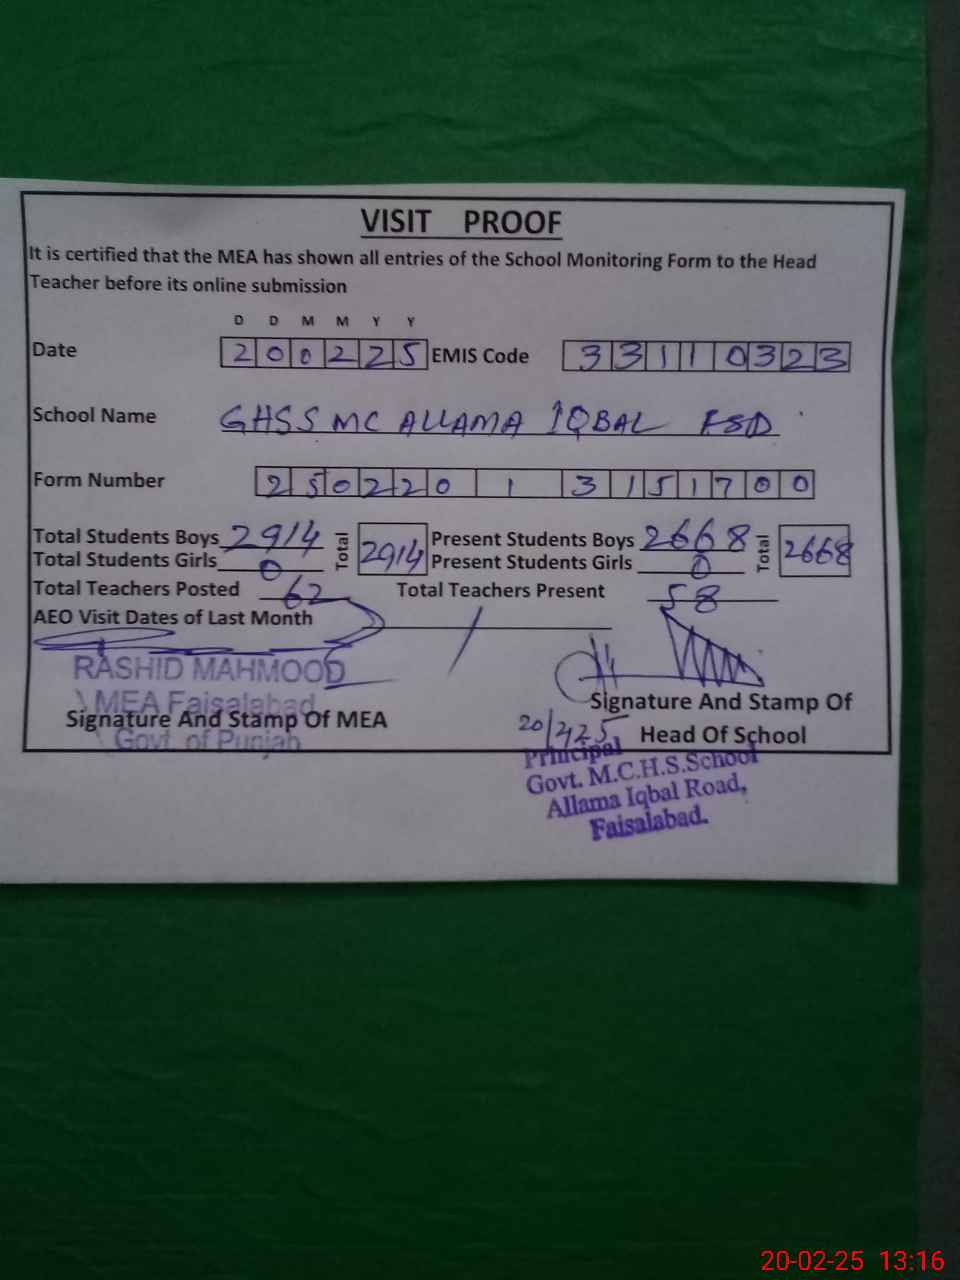 VISIT PROOF
It is certified that the MEA has shown all entries of the School Monitoring Form to the Head
Teacher before its online submission
D D M M Y Y
Date 200225 EMIS Code 33110323
School Name GHSS MC ALLAMA IQBAL FSD
Form Number 25022013151700
Total Students Boys 2914 Total 2914 Present Students Boys 2668 Total 2668
Total Students Girls 0 Present Students Girls 0
Total Teachers Posted 62 Total Teachers Present 58
AEO Visit Dates of Last Month /
RASHID MAHMOOD
MEA Faisalabad
Govt. of Punjab
Signature And Stamp Of MEA
Signature And Stamp Of
Head Of School
20/2/25
Principal
Govt. M.C.H.S.School
Allama Iqbal Road,
Faisalabad.
20-02-25 13:16